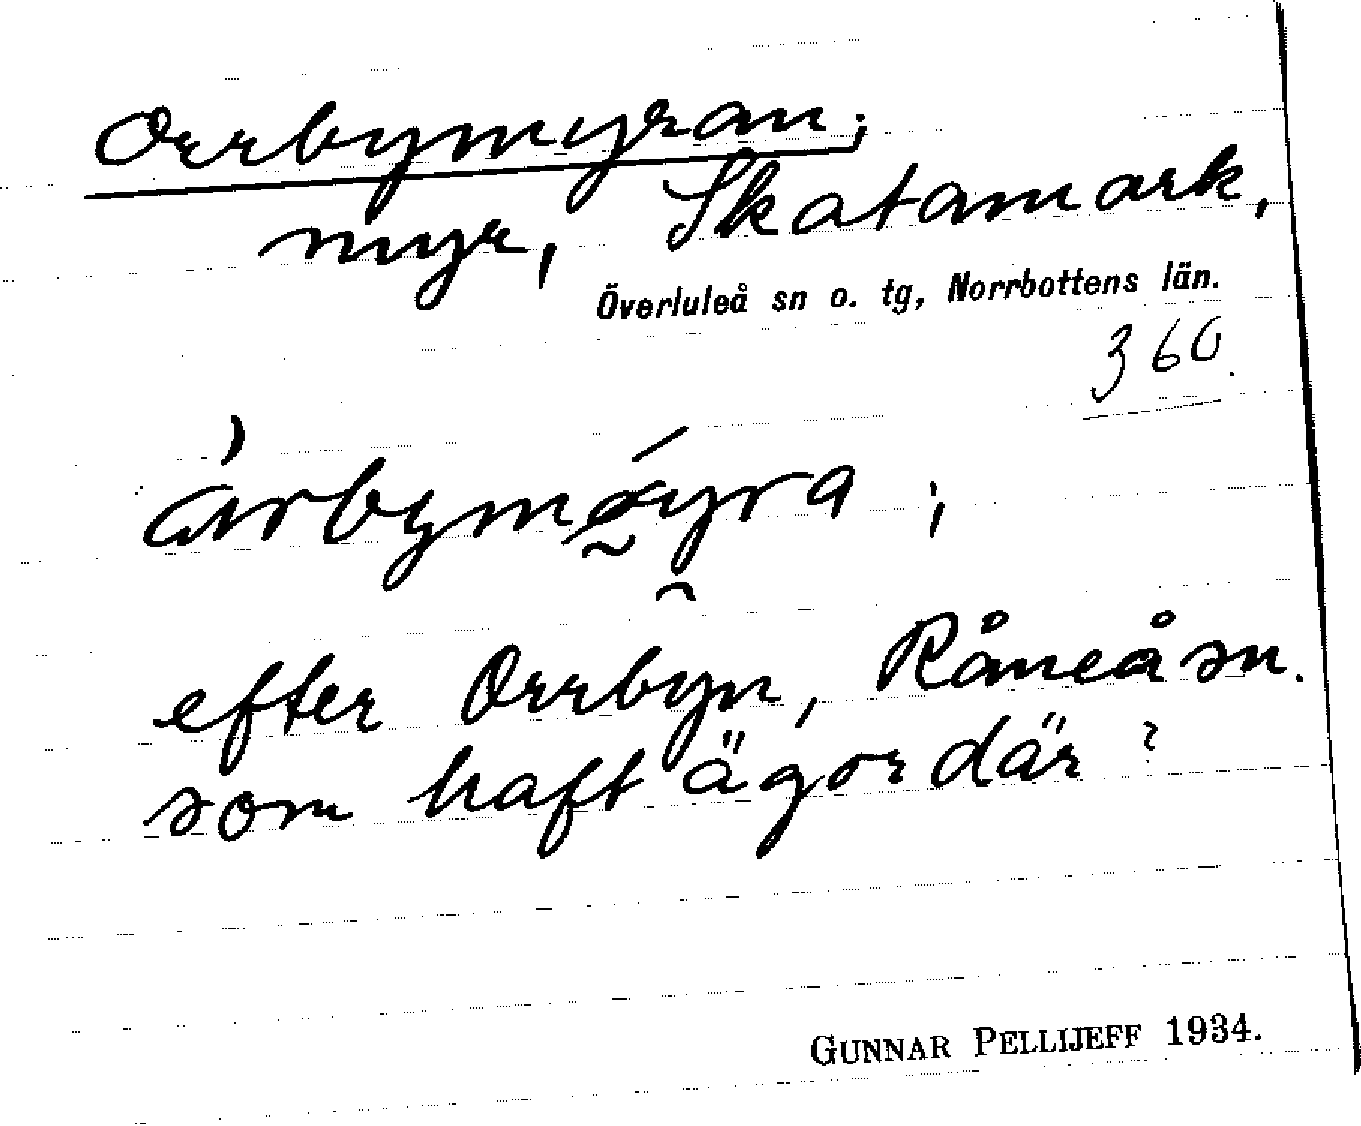 Orrbymyran;
myr, Skatamark,
Överluleå sn o. tg, Norrbottens län.
360.
efter Orrbyn, Råneå sn.
som haft ägor där?
GUNNAR PELLIJEFF 1934.